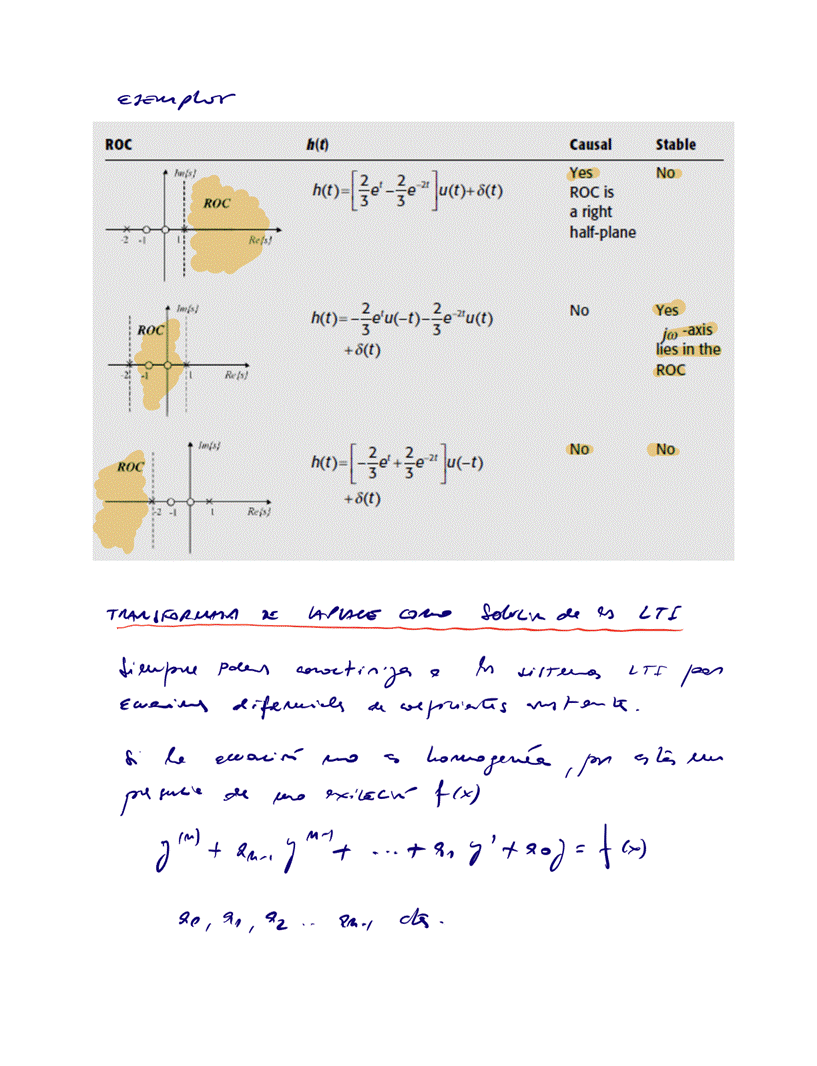 ejemplos
ROC h(t) Causal Stable
Im[s] ROC -2 -1 1 Re[s]
h(t)=[2/3 e^t − 2/3 e^{-2t}]u(t)+δ(t)
Yes
ROC is
a right
half-plane
No
Im[s] ROC -2 -1 1 Re[s]
h(t)=−2/3 e^t u(−t)−2/3 e^{-2t}u(t)
+δ(t)
No
Yes
jω -axis
lies in the
ROC
Im[s] ROC -2 -1 1 Re[s]
h(t)=[−2/3 e^t + 2/3 e^{-2t}]u(−t)
+δ(t)
No
No
TRANSFORMADA DE LAPLACE COMO de LTI
Siempre a los sistemas LTI por
ecuaciones diferenciales de coeficientes
Si la ecuación no es homogenéa, por estar en
presencia de una f(x)
y^(n) + a_{n-1} y^{n-1} + ... + a_1 y' + a_0 y = f(x)
a_0, a_1, a_2 .. a_{n-1} ctes.